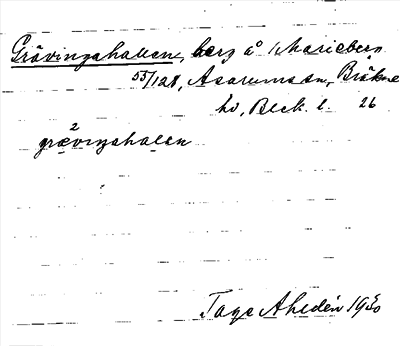 Grävingahallen, berg å Marieberg
53/128, Asarums sn, Bräkne
hd, Blek. l. 26
2
grævinjahalan
Tage Ahldén 1930